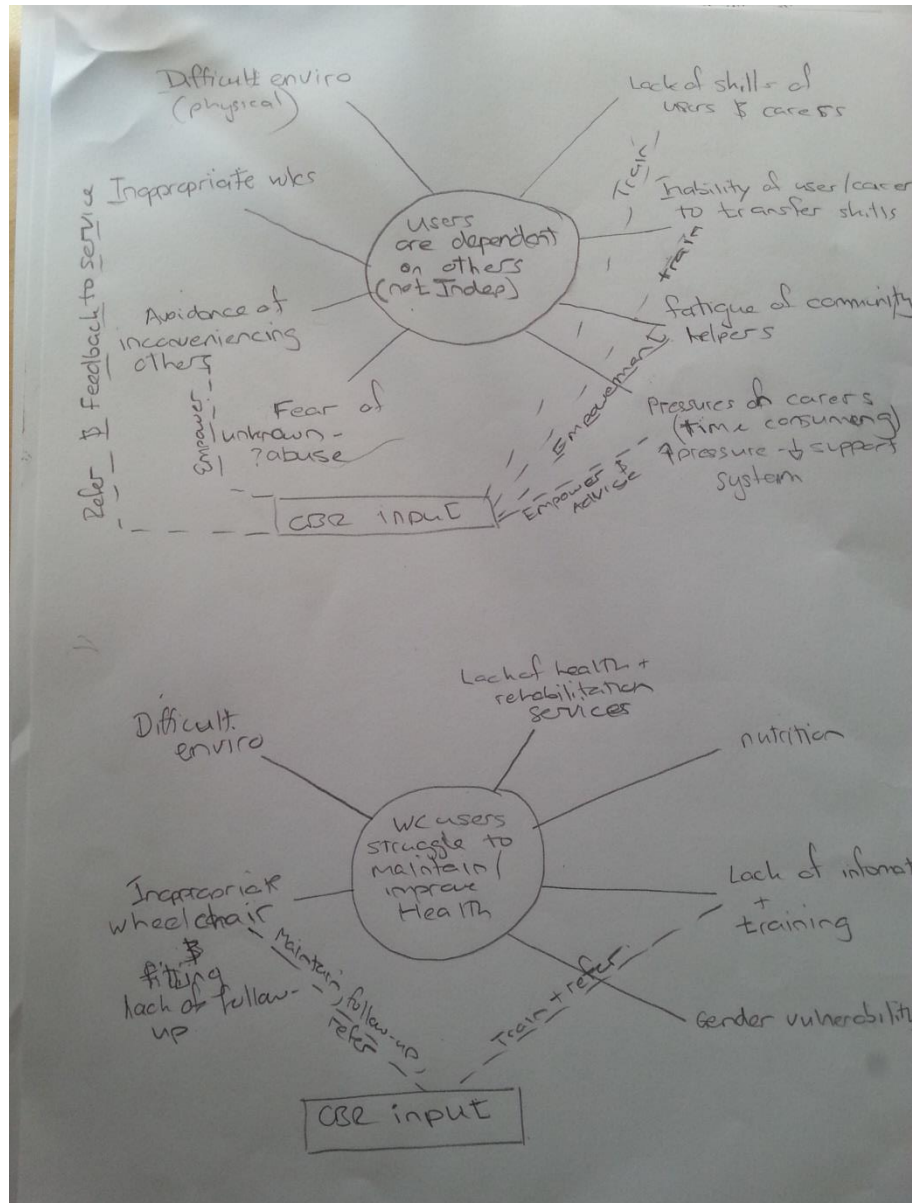 Difficult enviro
(physical)
Lack of skills of
users & carers
Inappropriate wcs
Inability of user/carer
to transfer skills
users
are dependent
on others
(not Indep)
Avoidance of
inconveniencing
others
fatigue of community
helpers
Fear of
unknown -
?abuse
Pressures on carers
(time consuming)
↑pressure → ↓ support
system
Refer & feedback to service
Empower
Train
train
Empowerment
Empower &
Advise
CBR input
Lack of health +
rehabilitation
services
Difficult
enviro
nutrition
WC users
struggle to
maintain/
improve
Health
Inappropriate
wheelchair
&
fitting
lack of follow-
up
Lack of informat
+
training
Gender vulnerabilit
Maintain, follow-up,
refer
Train + refer
CBR input